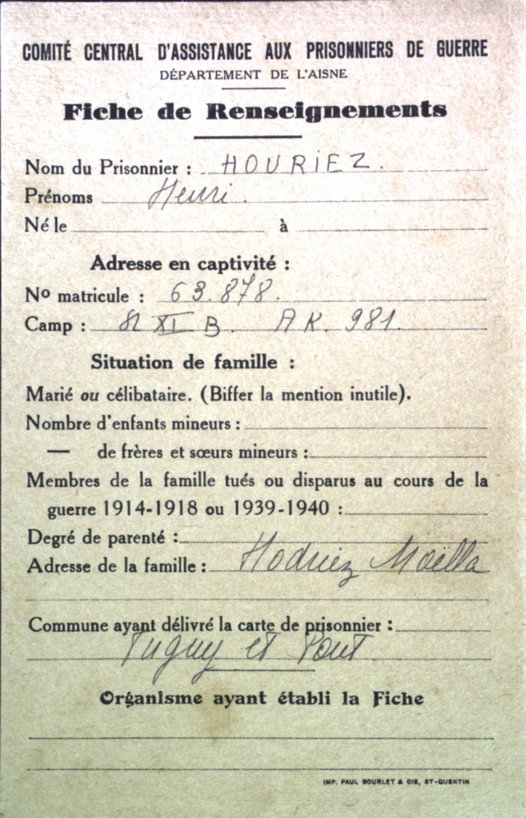 COMITÉ CENTRAL D'ASSISTANCE AUX PRISONNIERS DE GUERRE
DÉPARTEMENT DE L'AISNE
Fiche de Renseignements
Nom du Prisonnier : HOURIEZ.
Prénoms Henri.
Né le à
Adresse en captivité :
No matricule : 63.878.
Camp : XI B. AK. 981.
Situation de famille :
Marié ou célibataire. (Biffer la mention inutile).
Nombre d'enfants mineurs :
— de frères et sœurs mineurs :
Membres de la famille tués ou disparus au cours de la
guerre 1914-1918 ou 1939-1940 :
Degré de parenté :
Adresse de la famille :
Commune ayant délivré la carte de prisonnier :
Tugny et Pont
Organisme ayant établi la Fiche
IMP. PAUL BOURLET & CIE, ST-QUENTIN